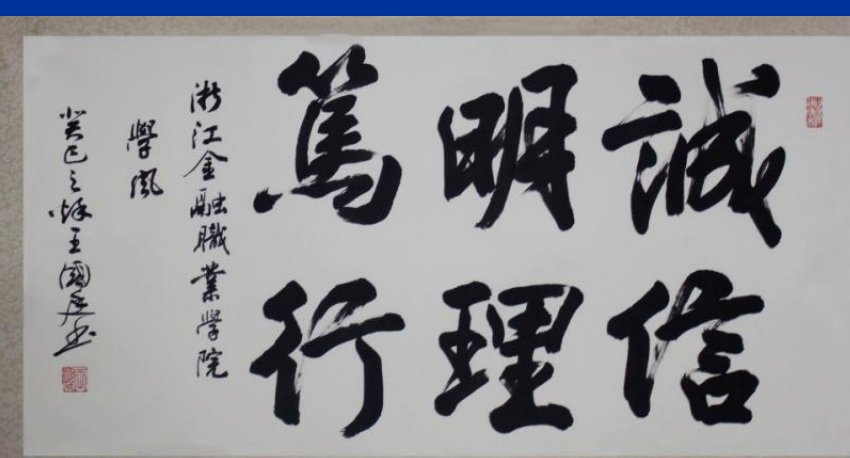 誠信
明理
篤行
浙江金融職業學院
學風
癸巳之秋王國庭书